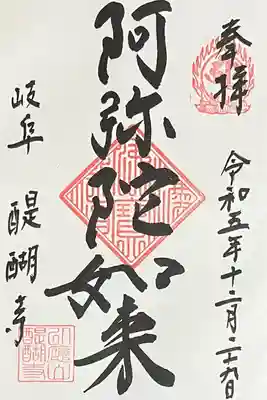 奉拝
令和五年十二月二十九日
阿弥陀如来
岐阜 醍醐寺